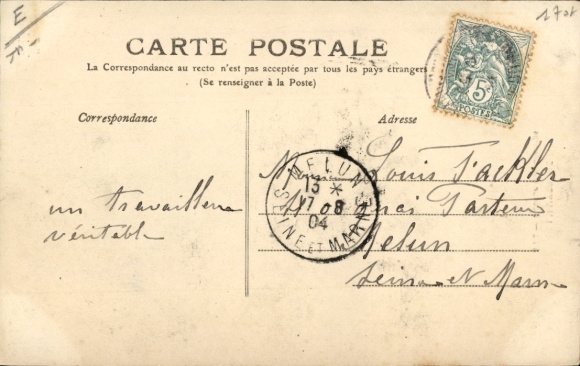 E
170x
CARTE POSTALE
La Correspondance au recto n'est pas acceptée par tous les pays étrangers
(Se renseigner à la Poste)
5c
POSTES
Correspondance
Adresse
un travailleur
véritable
MELUN
13 *
17 8
04
SEINE ET MARNE
Louis
Pasteur
Melun
Seine-et-Marne